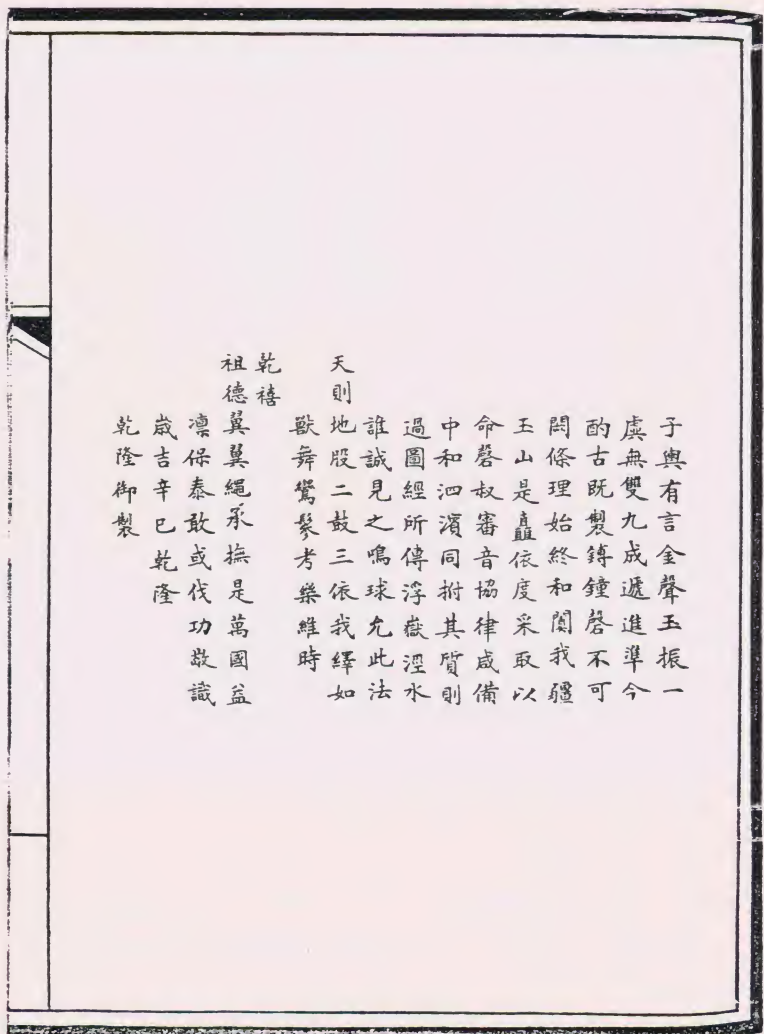 子輿有言金聲玉振一
虡無雙九成遞進準今
酌古既製鎛鐘磬不可
闕條理始終和闐我疆
玉山是矗依度采取以
命磬叔審音協律咸備
中和泗濱同拊其質則
過圖經所傳浮嶽涇水
誰誠見之鳴球允此法
天則地股二鼓三依我繹如
獸舞鸞鬖考樂維時
乾禧
祖德翼翼繩承撫是萬國益
凜保泰敢或伐功敬識
歲吉辛巳乾隆
乾隆御製